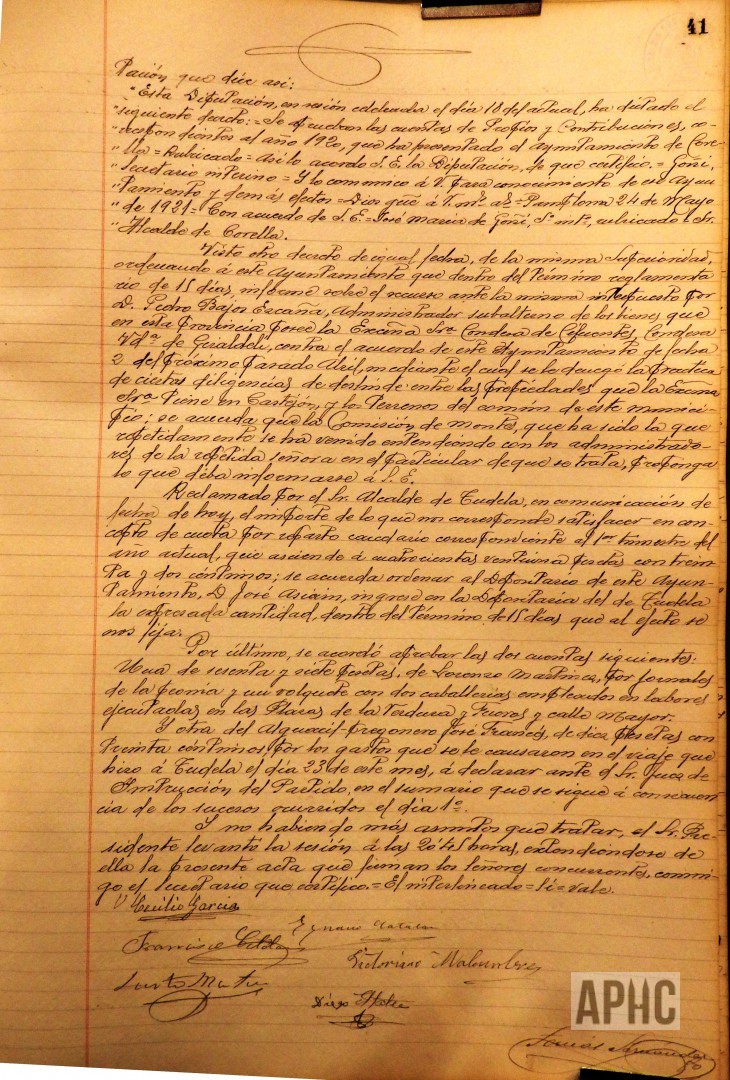 41
tación que dice así:
"Esta Diputación, en sesión celebrada el día 18 del actual, ha dictado el
"siguiente decreto:= Se aprueban las cuentas de Propios y Contribuciones, co-
"rrespondientes al año 1920, que ha presentado el Ayuntamiento de Core-
"lla = Rubricado = Así lo acordó S.E. la Diputación, de que certifico. = Goñi,
"Secretario interino = Y lo comunico á V. para conocimiento de ese Ayun-
"tamiento y demás efectos = Dios gue á V. ms. as = Pamplona 24 de Mayo
"de 1921 = Con acuerdo de S.E = José María de Goñi, Sº intº, rubricado = Sr.
"Alcalde de Corella.
Visto otro decreto de igual fecha, de la misma Superioridad,
ordenando á este Ayuntamiento que dentro del término reglamenta-
rio de 15 días, informe sobre el recurso ante la misma interpuesto por
D. Pedro Bajos Escaña, Administrador subalterno de los bienes que
en esta provincia posee la Excma Sra Condesa de Cifuentes, Condesa
Vdª de Giraldeli, contra el acuerdo de este Ayuntamiento de fecha
2 del próximo pasado Abril, mediante el cual se le denegó la práctica
de ciertas diligencias de deslinde entre las propiedades que la Excma
Sra tiene en Castejón, y los terrenos del común de este munici-
pio; se acuerda que la Comisión de montes, que ha sido la que
repetidamente se ha venido entendiendo con los administrado-
res de la repetida señora en el particular de que se trata, proponga
lo que deba informarse á S.E.
Reclamado por el Sr. Alcalde de Tudela, en comunicación de
fecha de hoy, el importe de lo que nos corresponde satisfacer en con-
cepto de cuota por reparto carcelario correspondiente al 1er trimestre del
año actual, que asciende á cuatrocientas veintiuna pesetas con trein-
ta y dos céntimos; se acuerda ordenar al Depositario de este Ayun-
tamiento, D. José Asiain, ingrese en la Depositaría del de Tudela
la expresada cantidad, dentro del término de 15 días que al efecto se
nos fija.
Por último, se acordó aprobar las dos cuentas siguientes:
Una de sesenta y siete pesetas, de Lorenzo Martínez, por jornales
de la peonía y un volquete con dos caballerías empleados en labores
ejecutadas en las Plazas de la Verdura y Fueros y calle Mayor.
Y otra del Alguacil-pregonero José Francés, de diez pesetas con
treinta céntimos por los gastos que se le causaron en el viaje que
hizo á Tudela el día 23 de este mes, á declarar ante el Sr. Juez de
Instrucción del Partido, en el sumario que se sigue á consecuen-
cia de los sucesos ocurridos el día 1º.
Y no habiendo más asuntos que tratar, el Sr. Pre-
sidente levantó la sesión á las 20'45 horas, extendiéndose de
ella la presente acta que firman los Señores concurrentes, conmi-
go el Secretario que certifico. = El interlineado = Sí = vale.
Cecilio García
Ignacio Catalan
Francisco
Victoriano Malumbres
Justo Mateo
Diego
Tomás Fernández
APHC